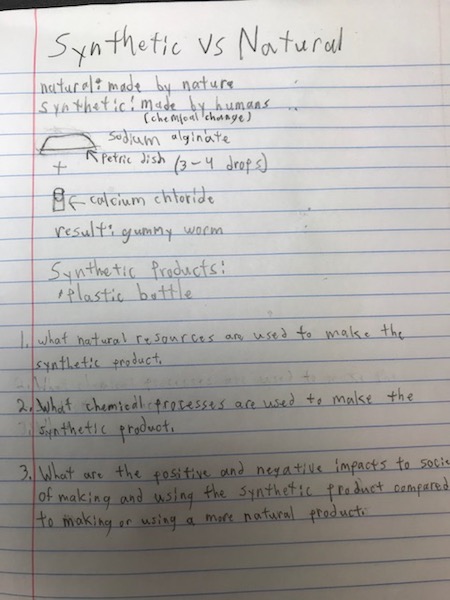 Synthetic vs Natural
natural: made by nature
synthetic: made by humans
(chemical change)
sodium alginate
+ petric dish (3-4 drops)
calcium chloride
result: gummy worm
Synthetic Products:
plastic bottle
1. what natural resources are used to make the
synthetic product.
2. What chemical processes are used to make the
synthetic product.
3. What are the positive and negative impacts to socie
of making and using the synthetic product compared
to making or using a more natural product.